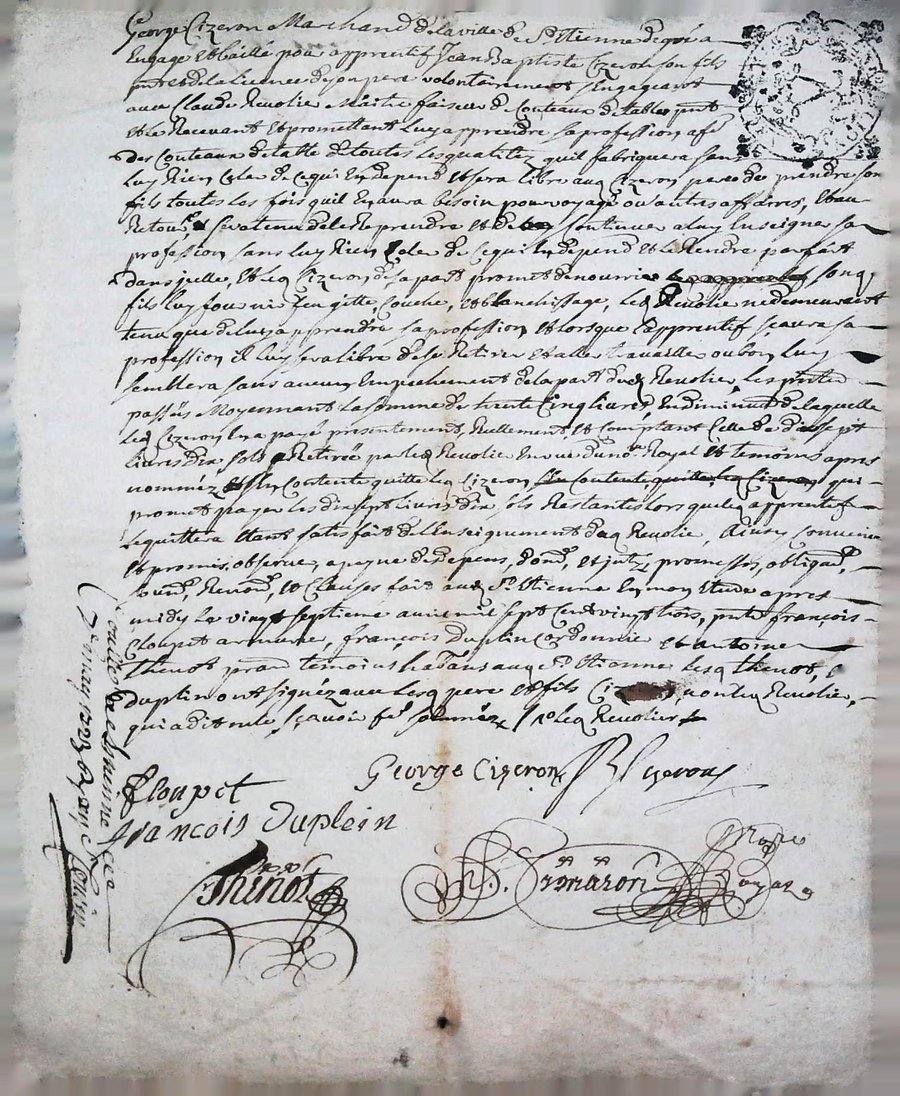 George Cizeron Marchand de la ville de St Etienne de gré a
Engage et baillé pour apprentif Jean Baptiste Cizeron son fils
de la licence de son pere volontairement s'engageant
avec Claude Revolie Maitre faiseur de Couteaux de tables pnt
et le Recevant et promettant luy apprendre sa profession
des Couteaux de table de toutes les qualitez quil fabriquera sans
luy Rien celer de ce qui en depend et sera libre aud Cizeron pere de prendre son
fils toutes les fois quil en aura besoin pour voyage ou autres affaires, et au
Retour sera tenu de le Reprendre et de continuer a luy Enseigner sa
profession sans luy Rien Celer de Ce qui En depend et le Rendre parfait
dans jcelle, et led Cizeron de sa part promet de nourrir sond
fils luy fournir feu gitte, Couche, et blanchissage, led Revolie ne demeurant
tenu que de luy apprendre sa profession et lorsque l'apprentif scaura sa
profession il luy sera libre de se Retirer et aller travailler ou bon luy
semblera sans aucun Empechement de la part dud Revolier, les pntes
passeés Moyennant la somme de trente Cinq livres En diminution de laquelle
led Cizeron En a payé presentement Reellement et Comptant Celle de dix sept
livres dix sols Retirée par led Revolie En vue du nore Royal et temoins apres
nomméz et s'en Contente quitte led Cizeron s'en contente quitte led Cizeron qui
promet payer les dix sept livres dix sols Restantes lorsque led apprentif
le quittera Etant satisfait de l'Enseignement dud Revolie, Ainsy Convenu
et promis observer a peyne de depens, dom, et jntz, promesses, obligaon,
soumon, Renon, et Clauses fait aud St Etienne En mon Etude apres
midy le vingt septieme avril mil sept Cent vingt trois, pnts françois
floupet armurie, françois Duplein Cordonnie et antoine
thenot pran temoins habitans aud St Etienne lesd thenot, &
duplein ont signéz avec lesd pere et fils Cizeron, non led Revolie,
qui a dit ne le sçavoir fe sommé led Revolier
George Cizeron
J B Cizeron
floupet
francois Duplein
Thenot
nore
Royal
Controllé a St Etienne ce
7e may 1723